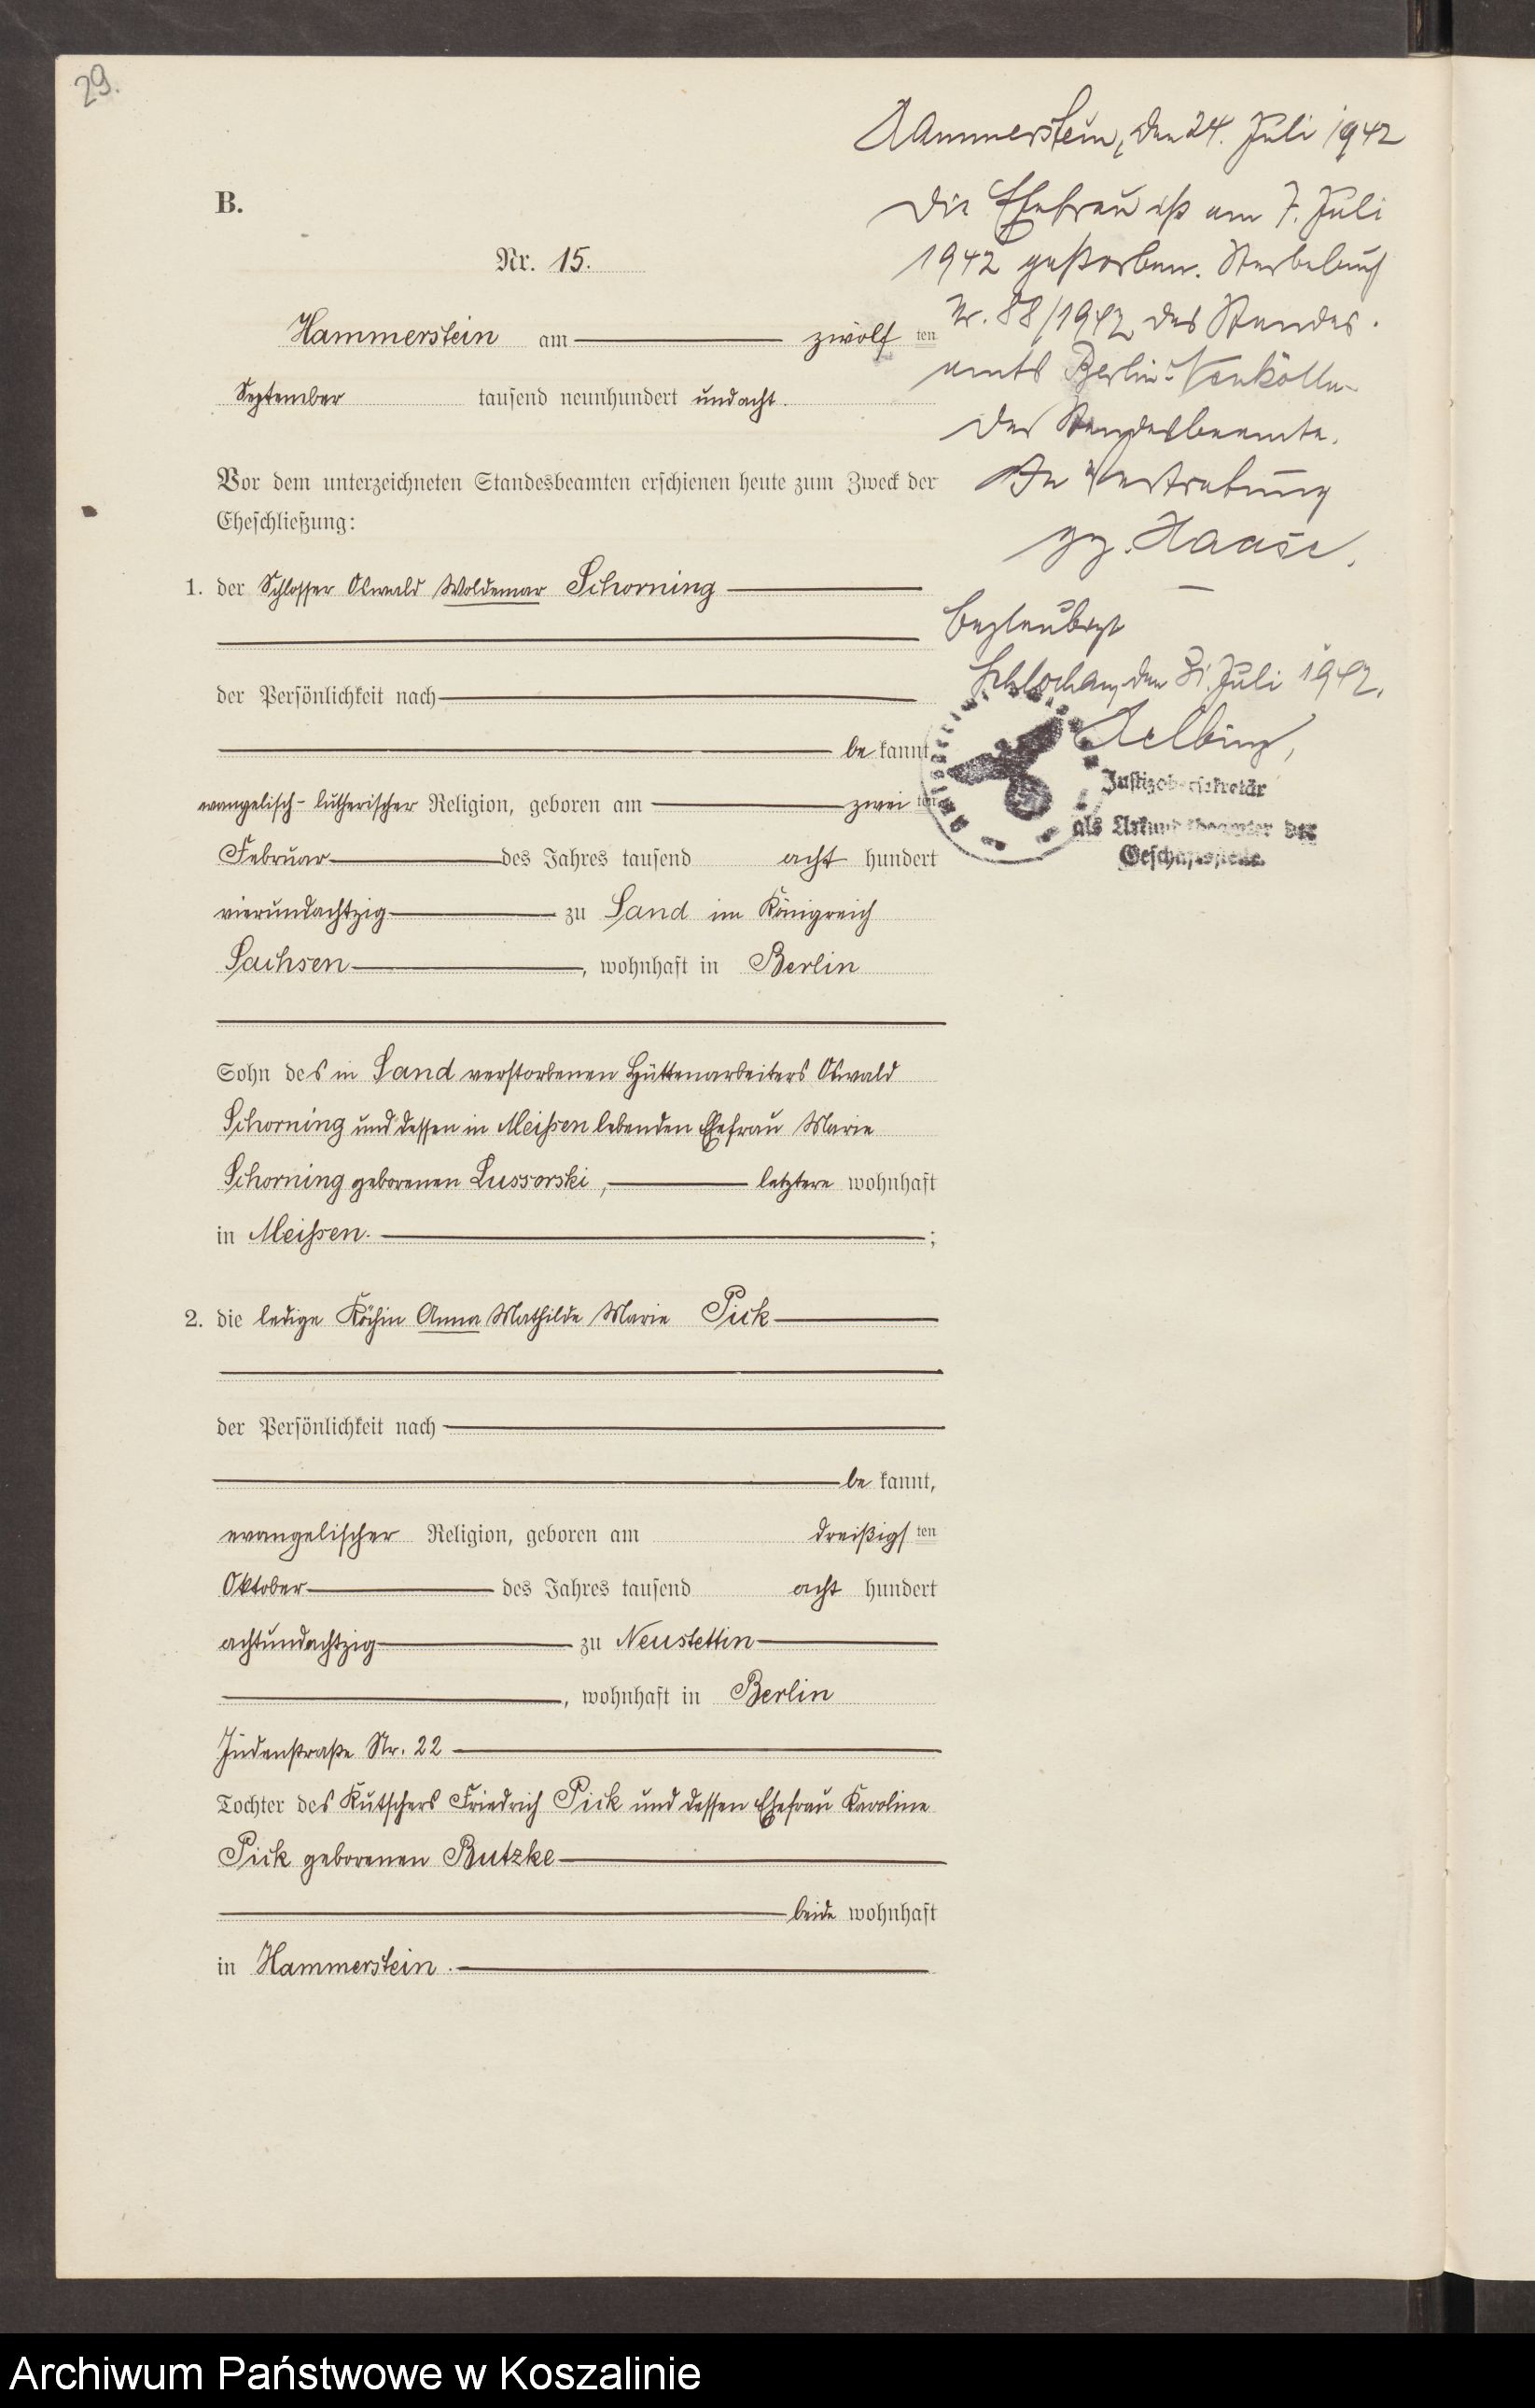 29.
B.
Nr. 15.
Hammerstein am zwölf ten
September tausend neunhundert und acht.
Vor dem unterzeichneten Standesbeamten erschienen heute zum Zweck der
Eheschließung:
1. der Schlosser Oswald Woldemar Schorning
der Persönlichkeit nach
be kannt,
evangelisch-lutherischer Religion, geboren am zwei ten
Februar des Jahres tausend acht hundert
vierundachtzig zu Sand im Königreich
Sachsen, wohnhaft in Berlin
Sohn des in Sand verstorbenen Hüttenarbeiters Oswald
Schorning und dessen in Meissen lebenden Ehefrau Marie
Schorning geborenen Lussorski, letztere wohnhaft
in Meissen. ;
2. die ledige Köchin Anna Mathilde Marie Pick
der Persönlichkeit nach
be kannt,
evangelischer Religion, geboren am dreißigs ten
Oktober des Jahres tausend acht hundert
achtundachtzig zu Neustettin
, wohnhaft in Berlin
Jüdenstraße Nr. 22
Tochter des Kutschers Friedrich Pick und dessen Ehefrau Karoline
Pick geborenen Butzke
beide wohnhaft
in Hammerstein.
Hammerstein, den 24. Juli 1942
Die Ehefrau ist am 7. Juli
1942 gestorben. Sterbebuch
Nr. 88/1942 des Standes-
amts Berlin-Neukölln
Der Standesbeamte.
In Vertretung
gez. Haase.
Beglaubigt
Schlochau, den 31. Juli 1942.
Justizobersekretär
als Urkundsbeamter der
Geschäftsstelle.
Archiwum Państwowe w Koszalinie